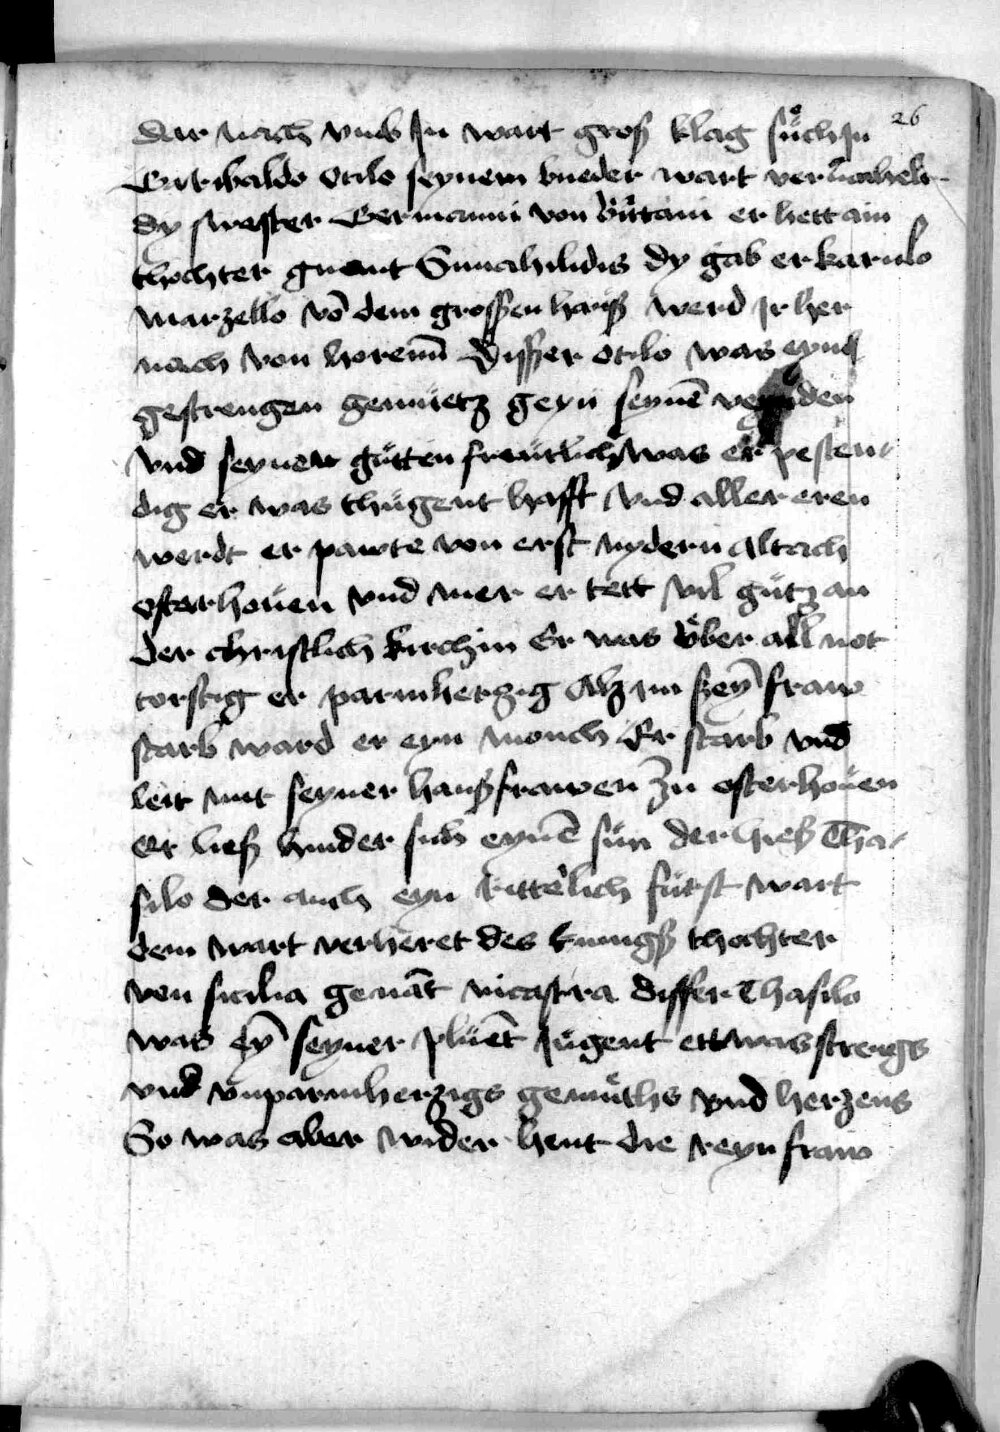 26
dar nach vmb In wart groß klag süch In
Gribaldo Otilo seynem brueder wart vermahelt
dy swester Germanni von Brittani er hett ain
thochter gnant Simahilidis dy gab er karulo
Marzello võ dem grossen hauß werd Ir her
nach von horenn Disser otilo was eyns
gestrengen gemüetz geyn seynẽ veinden
vnd seynen gütten freütlich was er pesten
dig er was thügent hafft vnd aller eren
werdt er pawte von erst nydern altach
osterhouen vnd mer er tett vil gütz an
der christlich kirchin Er was über all not
torftig er parmherzig Alz im seyn fraw
starb ward er eyn monch Er starb vnd
leit mit seyner haußfrawen zu osterhouen
Er ließ hinder sich eynẽ sün der hieß Tha
silo der auch eyn Ritterlich fürst wart
dem wart verheret des kunigß thochter
von sicilia genãt nicastra disser Thasilo
was ey̅ seyner plüet Jügent ettwas strengs
vnd vnparmherzigs gemüths vnd herzens
So was aber wider hent die reyn fraw